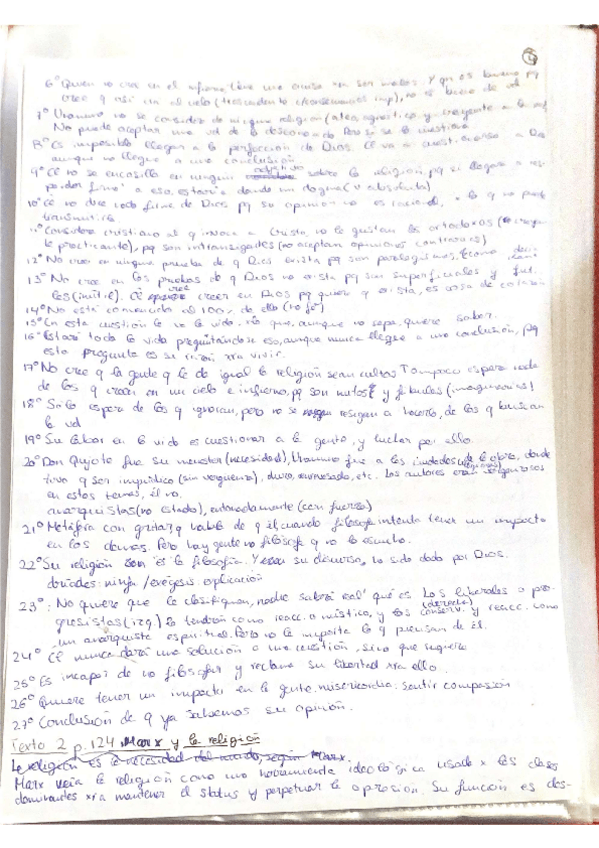 6º Quien no cree en el infierno, tiene una excusa
7º Unamuno no se considera de ninguna religión (ateo, agnóstico y creyente a la vez)
No puede aceptar una vd de lo desconocido. Pero si se lo cuestiona
8º Es imposible llegar a la perfección de Dios. Él va a cuestionarse a Dios
aunque no llegue a una conclusión
9º Él no se encasilla en ningún adjetivo sobre la religión pq si llegase a res-
ponder firme a eso, estaría dando un dogma (v absoluta)
10º Él no dice nada firme de Dios pq su opinión no es racional, lo q no puede
transmitirlo.
11º Considera cristiano al q invoca a Cristo, no le gustan los ortodoxos
le practicante), pq son intransigentes (no aceptan opiniones contrarias)
12º No cree en ninguna prueba de q Dios exista pq son paralogismos.
13º No cree en las pruebas de q Dios no exista pq son superficiales y fut
les (inútil). Él cree creer en Dios pq quiere q exista, es cosa de corazón
14º No está convencido al 100% de ello (no fe)
15º En esta cuestión le va la vida, aunque no sepa, quiere saber.
16º Estará toda la vida preguntándose eso, aunque nunca llegue a una conclusión, pq
esta pregunta es su razón xra vivir.
17º No cree q la gente q le da igual la religión sean cultas. Tampoco espera nada
de los q creen en un cielo e infierno, pq son mitos y fábulas (imaginarios)
18º Solo espera de los q ignoran, pero no se resignan a hacerlo, de los q buscan
la vd
19º Su labor en la vida es cuestionar a la gente, y luchar por ello.
20º Don Quijote fue su menester (necesidad), Unamuno fue a las ciudades de la obra, donde
tuvo q ser impúdico (sin vergüenza), duro, etc. Los autores eran vergonzosos
en estos temas, él no.
anarquistas (no estado), (con fuerza)
21º Metáfora con gritar q habla de q él cuando filosofa intenta tener un impacto
en los demás. Pero hay gente no filósofa q no lo escucha.
22º Su religión es la filosofía. Y su discurso, ha sido dado por Dios.
dríades: ninfa / exégesis: explicación
23º: No quiere que le clasifiquen, nadie sabrá real' qué es. Los liberales o pro-
gresistas (izq.) lo tendrán como reacc. o místico, y los conserv. (derecha) y reacc. como
un anarquista espiritual. Pero no le importa lo q piensan de él.
24º Él nunca dará una solución a una cuestión, sino que sugiere
25º Es incapaz de no filosofar y reclama su libertad xra ello.
26º Quiere tener un impacto en la gente. misericordia: sentir compasión
27º Conclusión de q ya sabemos su opinión.
Texto 2 p.124 Marx y la religión
La religión es la necesidad del mundo, según Marx.
Marx veía la religión como una herramienta ideológica usada x las clases
dominantes xra mantener el status y perpetuar la opresión. Su función es des-